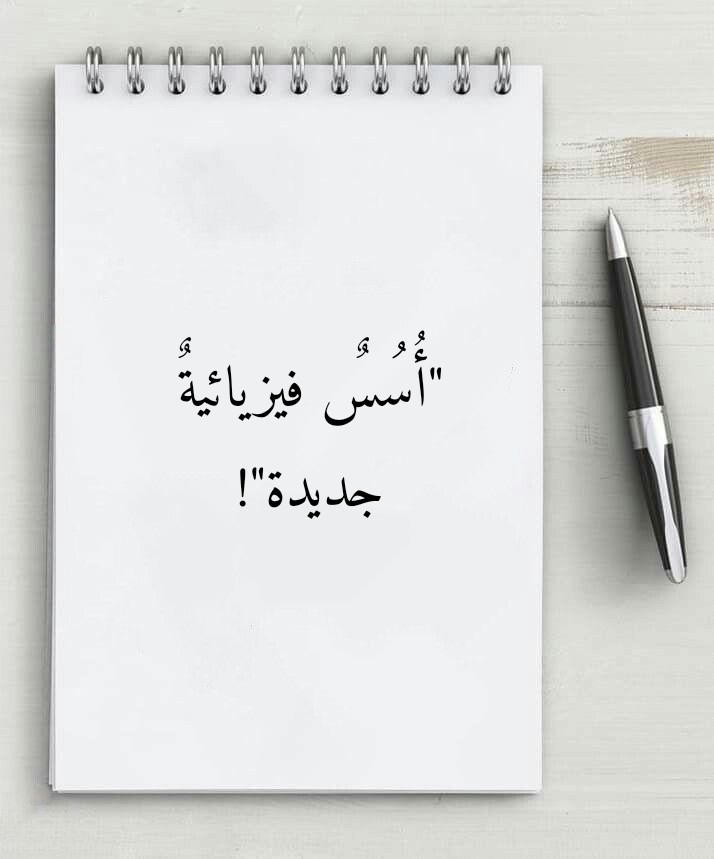 "أُسُسٌ فيزيائيةٌ
جديدة"!